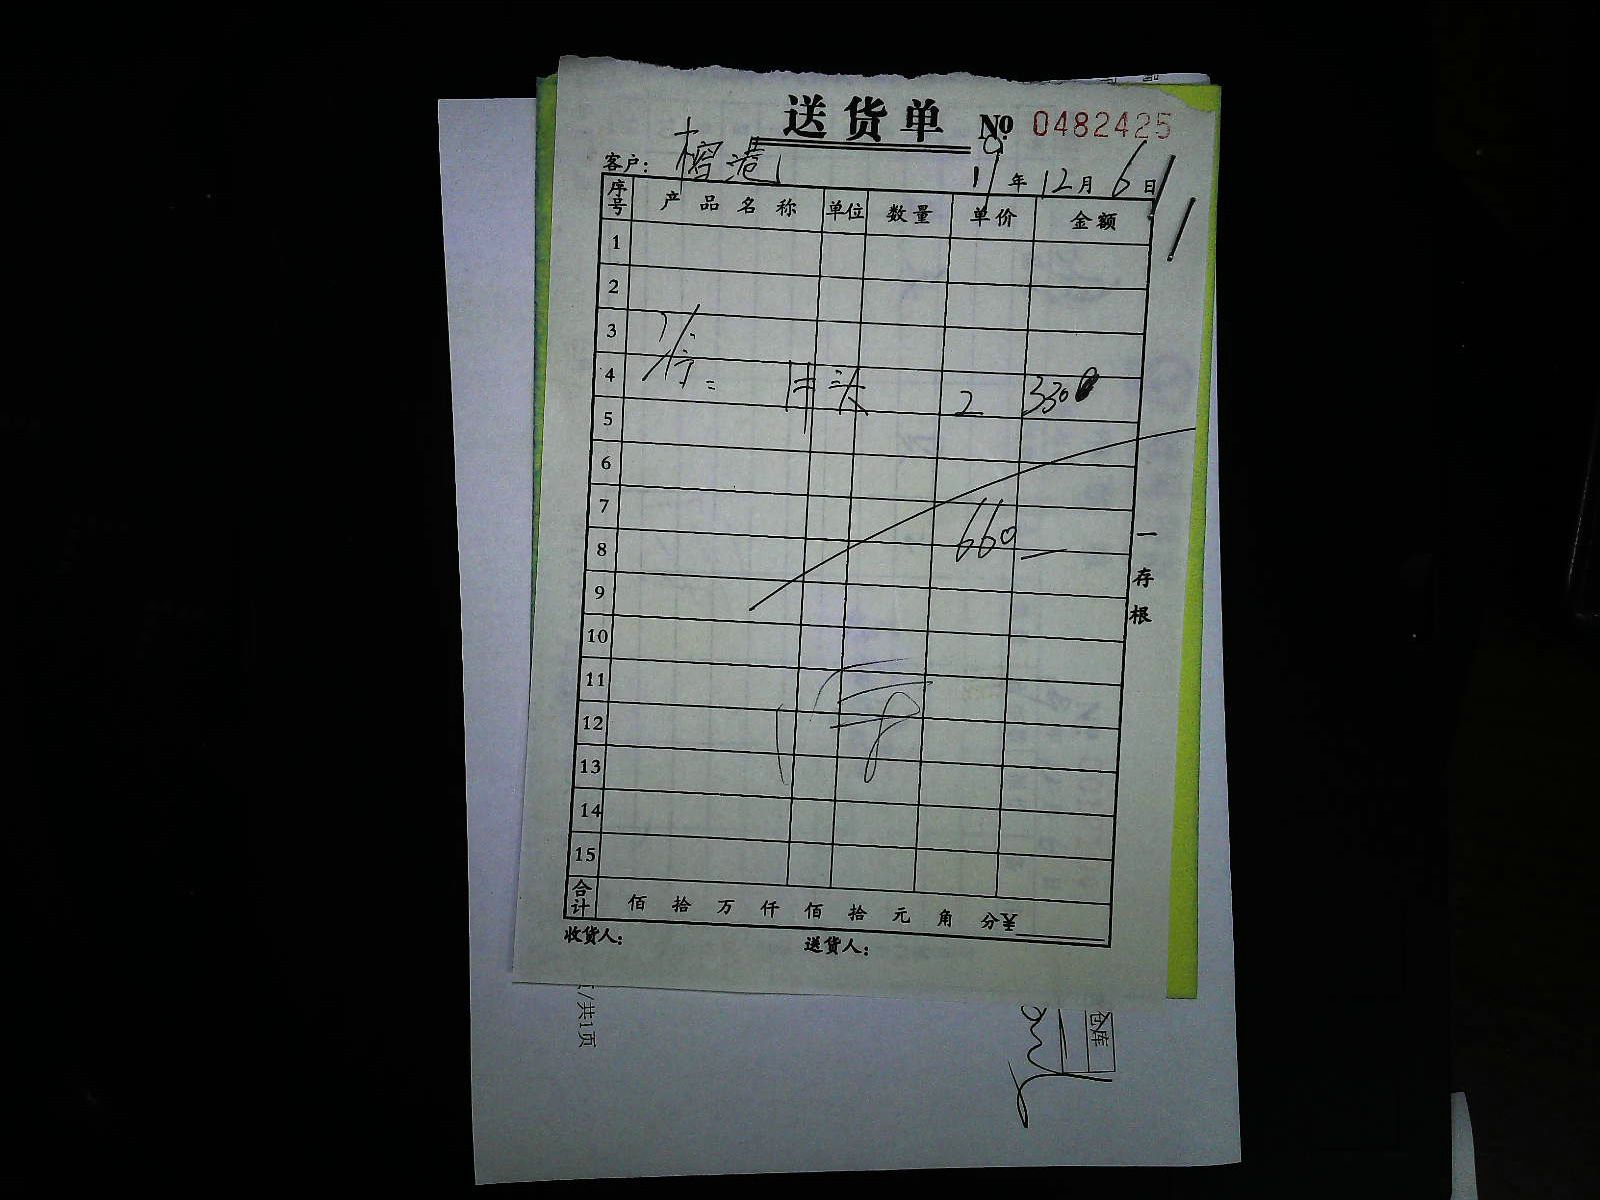 送货单 № 0482425
客户: 榕港 19年12月6日
序号 产品名称 单位 数量 单价 金额
1
2
3
4 2 330
5
6
7
660 —
8
9
10
11
12
13
14
15
合计 佰 拾 万 仟 佰 拾 元 角 分 ¥
收货人: 送货人:
一存根
页/共1页
仓库